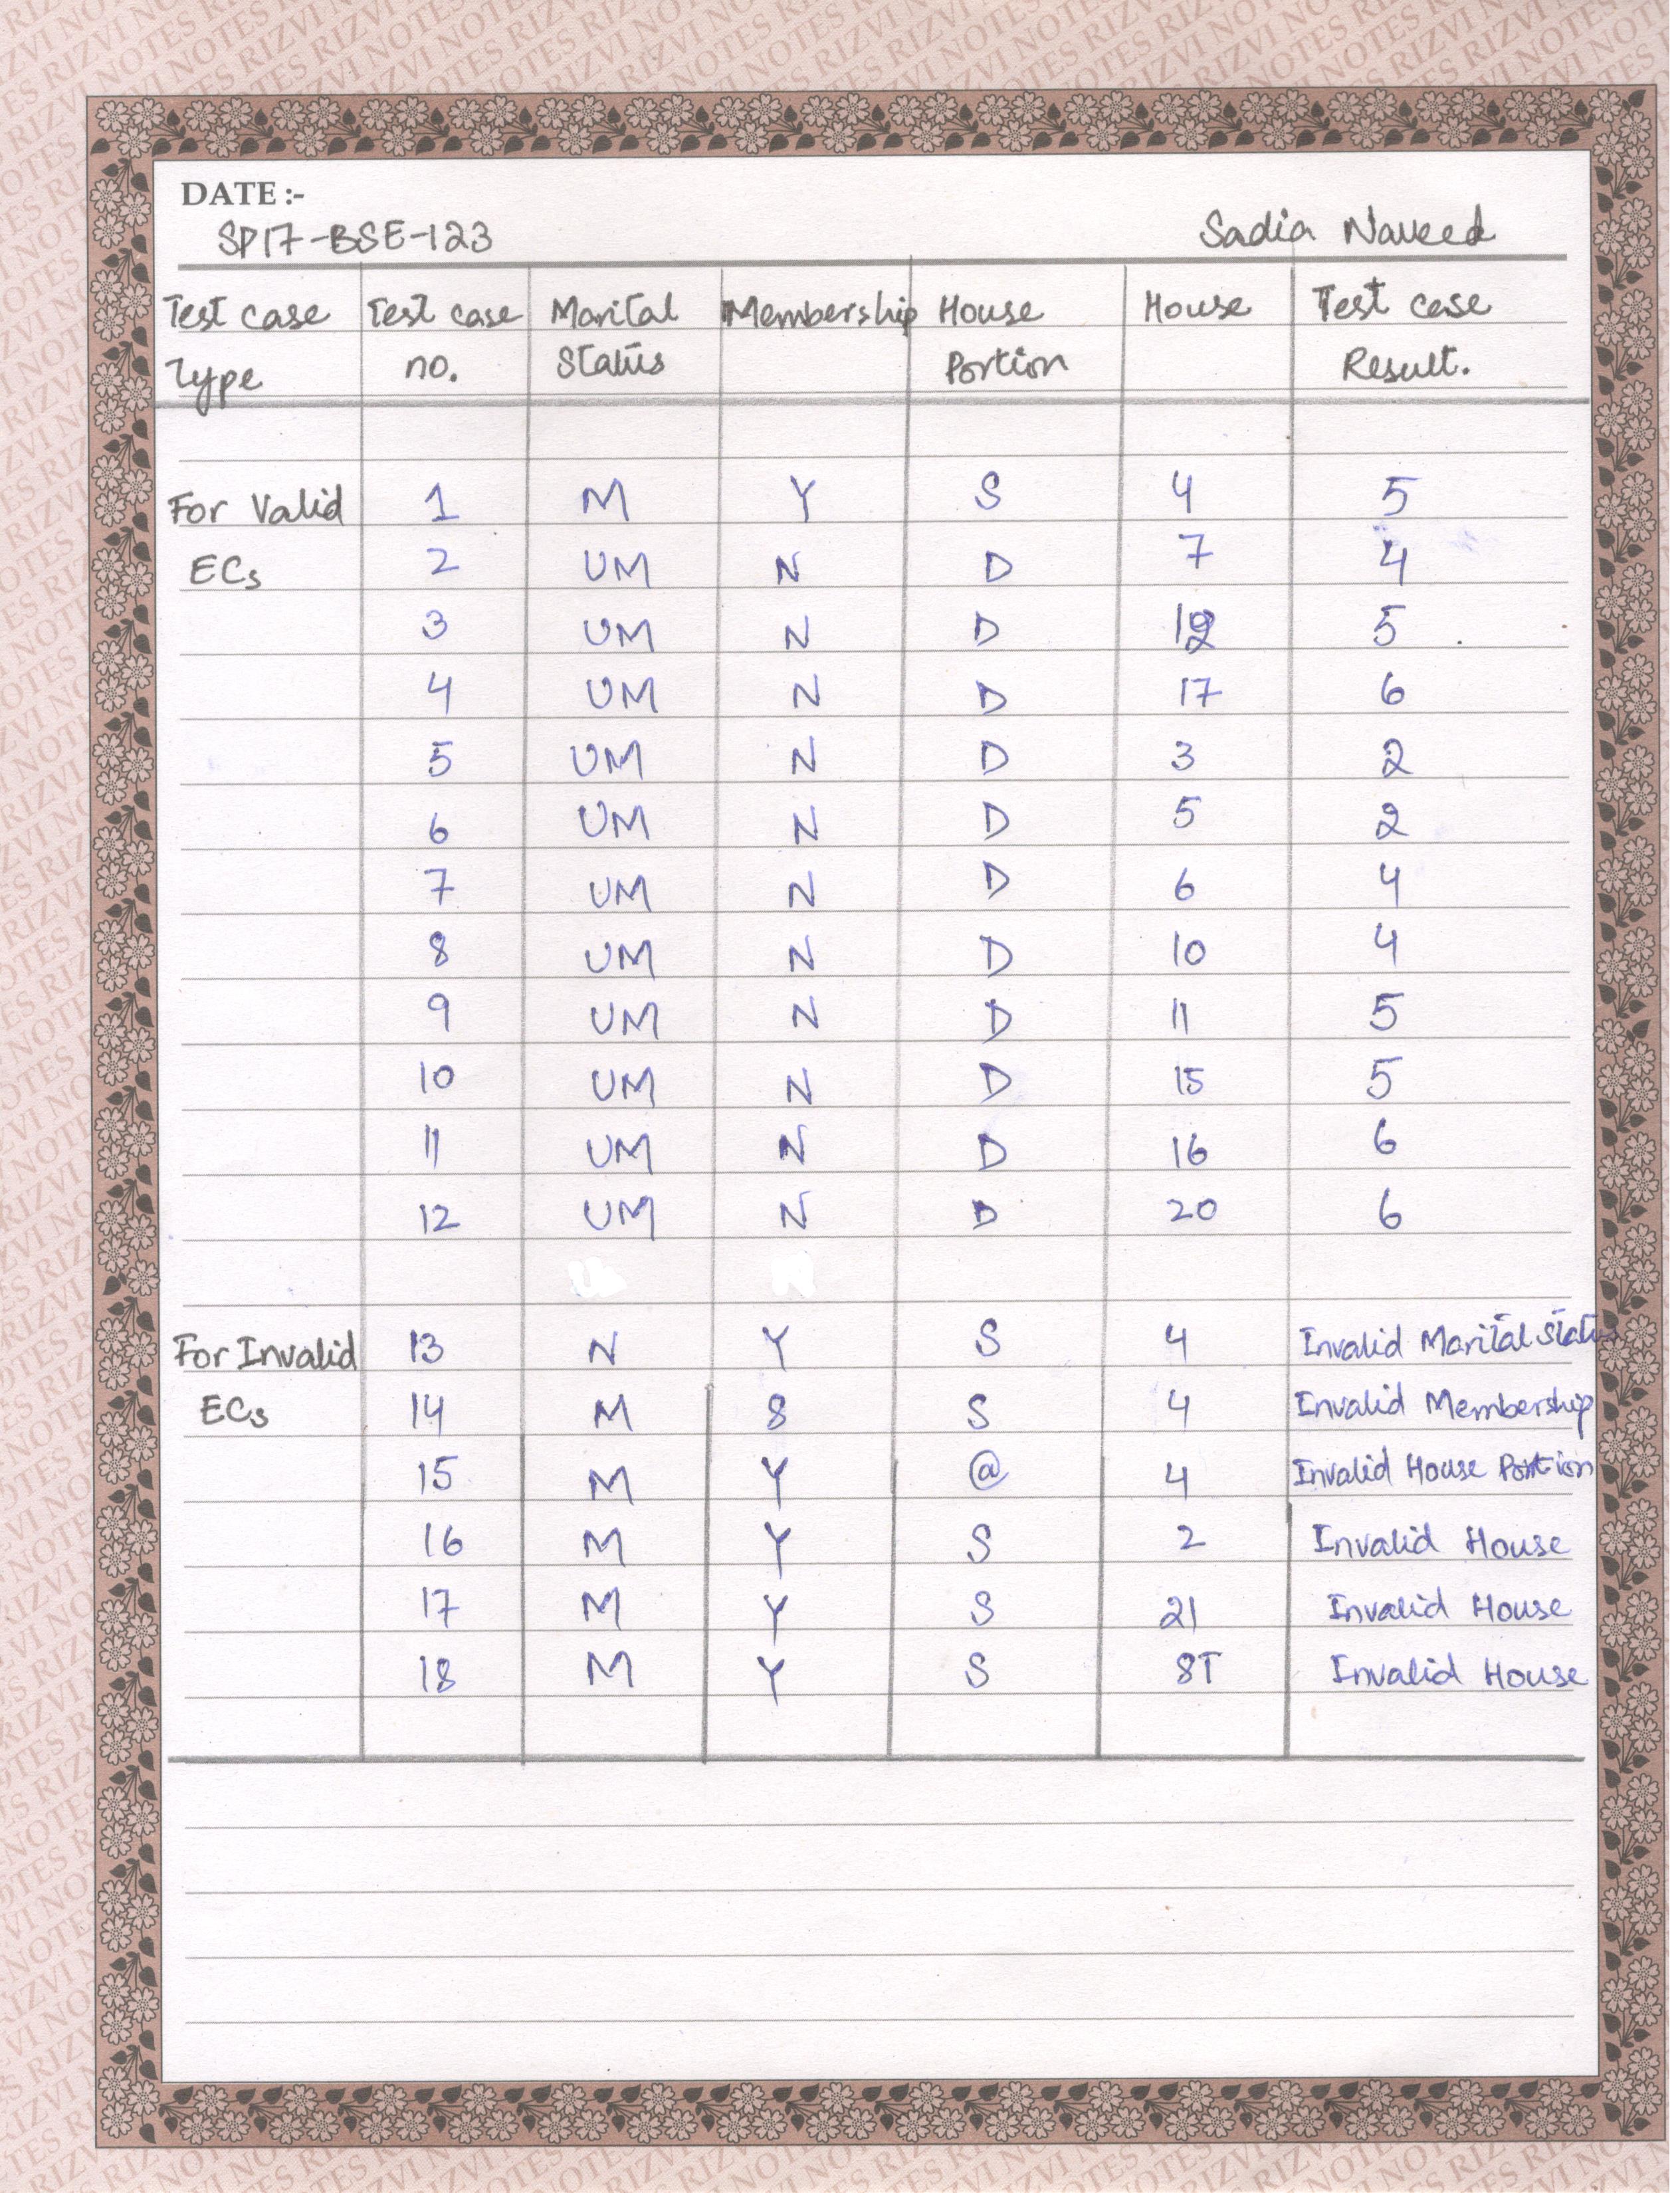 DATE :-
SP17-BSE-123 Sadia Naveed
Test case Test case Marital Membership House House Test case
Type no. Status Portion Result.
For Valid 1 M Y S 4 5
ECs 2 UM N D 7 4
3 UM N D 12 5
4 UM N D 17 6
5 UM N D 3 2
6 UM N D 5 2
7 UM N D 6 4
8 UM N D 10 4
9 UM N D 11 5
10 UM N D 15 5
11 UM N D 16 6
12 UM N D 20 6
For Invalid 13 N Y S 4 Invalid Marital Status
ECs 14 M 8 S 4 Invalid Membership
15 M Y @ 4 Invalid House Portion
16 M Y S 2 Invalid House
17 M Y S 21 Invalid House
18 M Y S 8T Invalid House
RIZVI NOTES